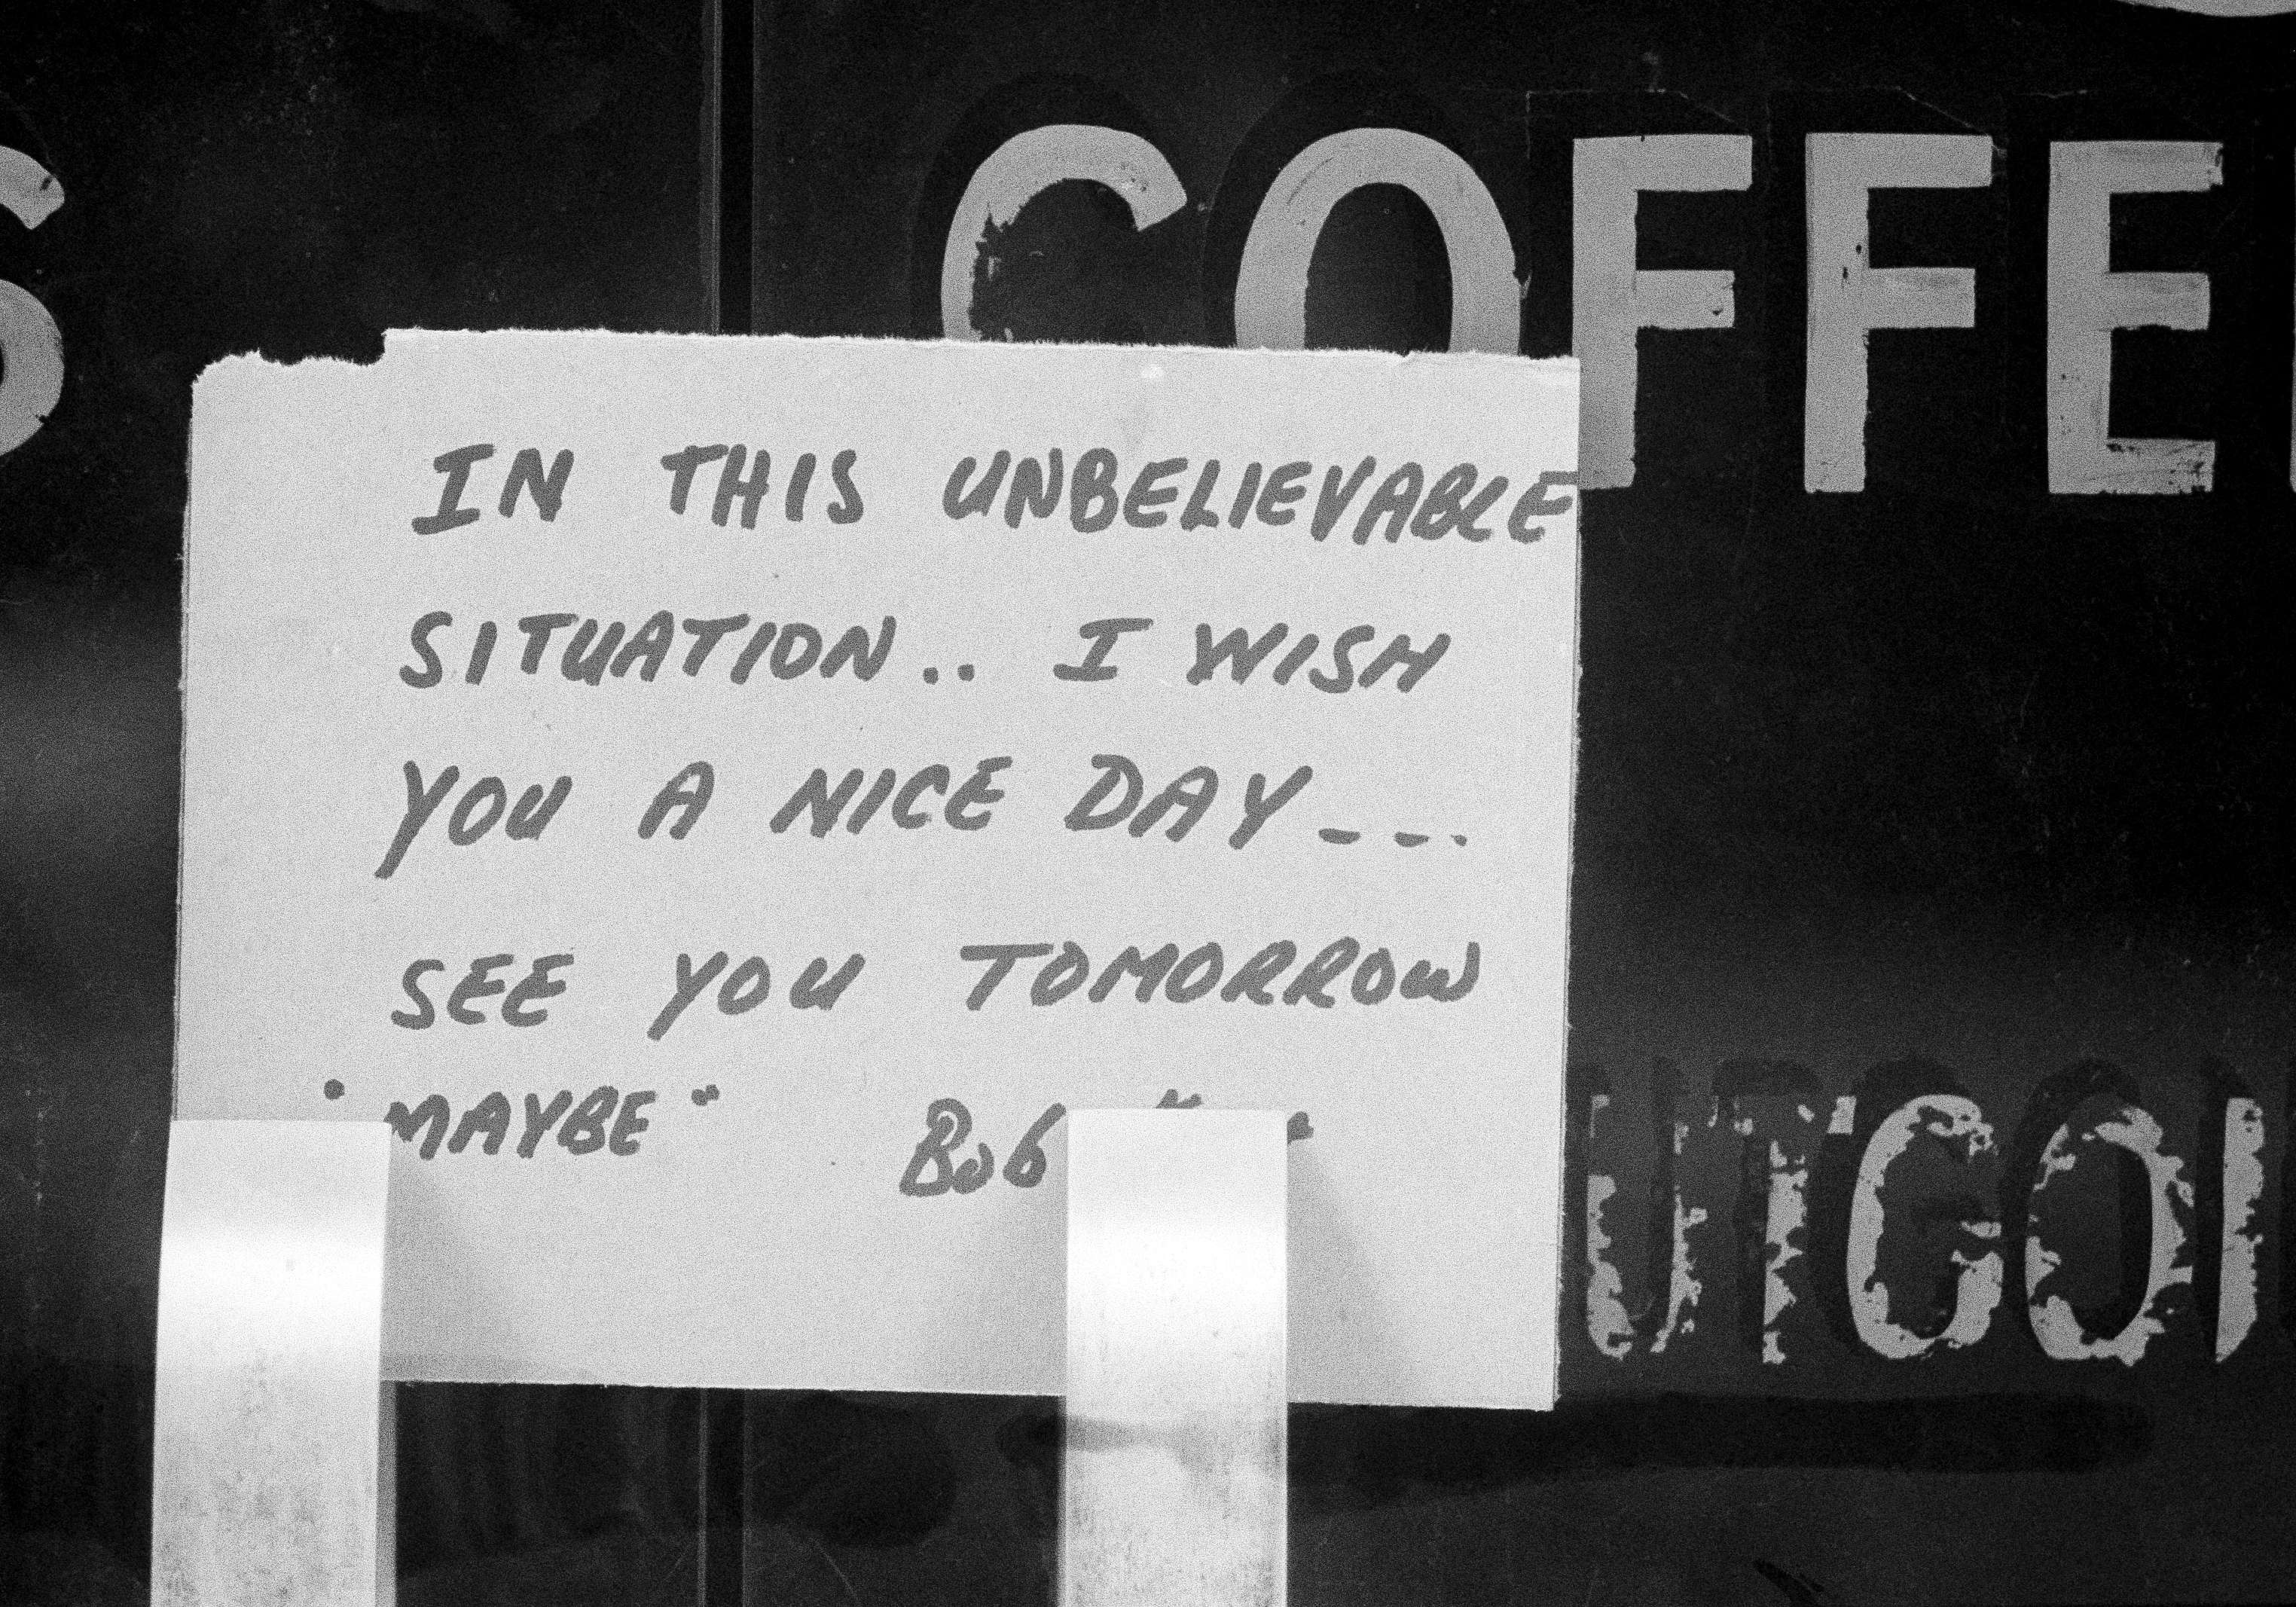 COFFEE
IN THIS UNBELIEVABLE
SITUATION.. I WISH
YOU A NICE DAY---
SEE YOU TOMORROW
"MAYBE" Bob